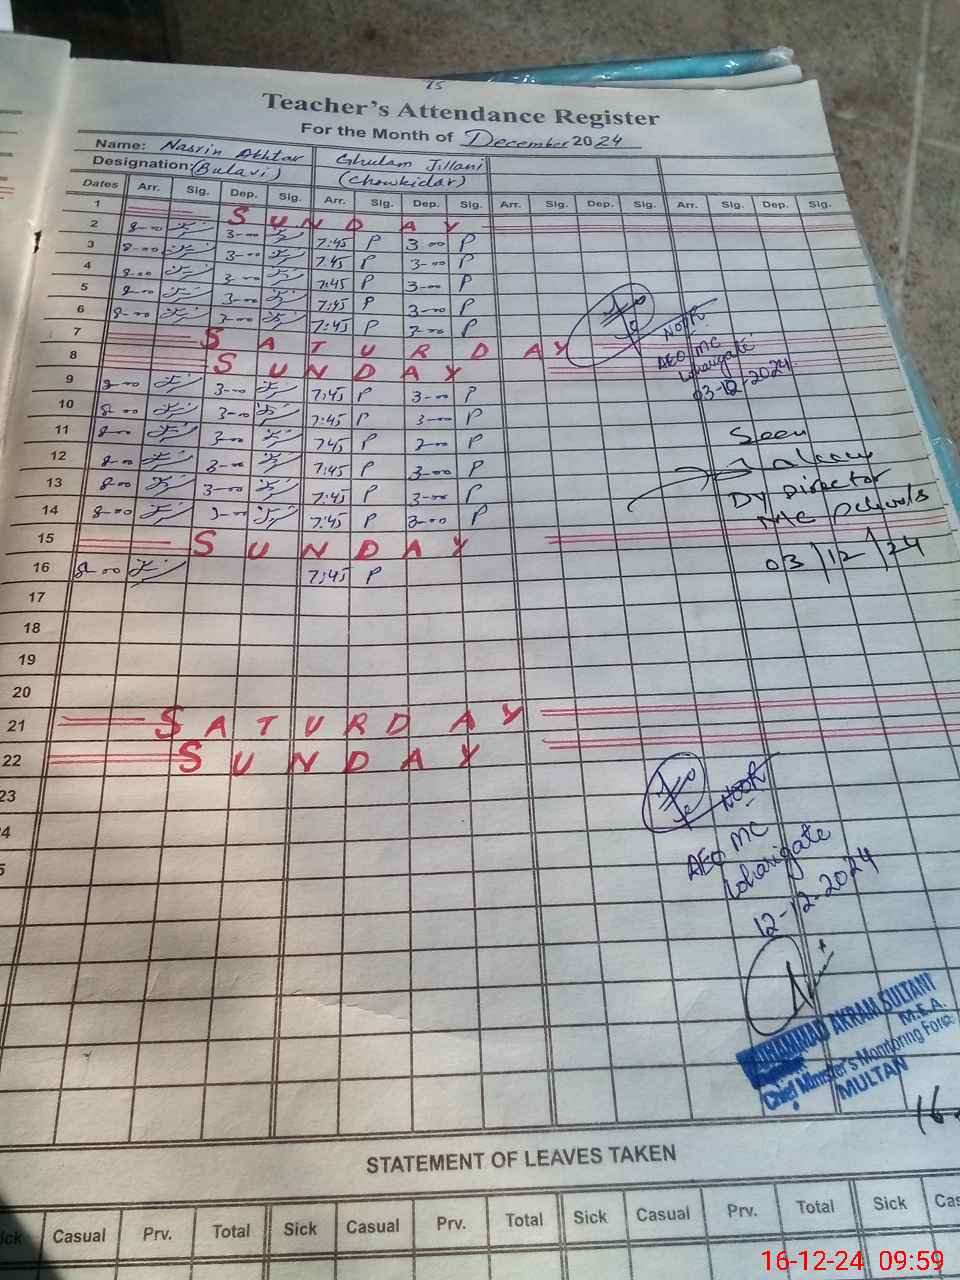 15
Teacher's Attendance Register
For the Month of December 2024
Name: Nasrin Akhtar Ghulam Jillani
Designation: (Bulavi) (Chowkidar)
Dates Arr. Sig. Dep. Sig. Arr. Sig. Dep. Sig. Arr. Sig. Dep. Sig. Arr. Sig. Dep. Sig.
1 SUNDAY
2 8-00 3-00 7:45 P 3-00 P
3 8-00 3-00 7:45 P 3-00 P
4 8-00 3-00 7:45 P 3-00 P
5 8-00 3-00 7:45 P 3-00 P
6 8-00 3-00 7:45 P 3-00 P
7 SATURDAY
8 SUNDAY
9 8-00 3-00 7:45 P 3-00 P
10 8-00 3-00 7:45 P 3-00 P
11 8-00 3-00 7:45 P 3-00 P
12 8-00 3-00 7:45 P 3-00 P
13 8-00 3-00 7:45 P 3-00 P
14 8-00 3-00 7:45 P 3-00 P
15 SUNDAY
16 8-00 7:45 P
17
18
19
20
21 SATURDAY
22 SUNDAY
23
4
5
NOOR
AEO MC
Loharigate
03-12-2024
Seen
Dy Director
MC Schools
03/12/24
NOOR
AEO MC
Loharigate
12-12-2024
MUHAMMAD AKRAM SULTANI
M.E.A.
Chief Minister's Monitoring Force
MULTAN
16
STATEMENT OF LEAVES TAKEN
ick Casual Prv. Total Sick Casual Prv. Total Sick Casual Prv. Total Sick Cas
16-12-24 09:59